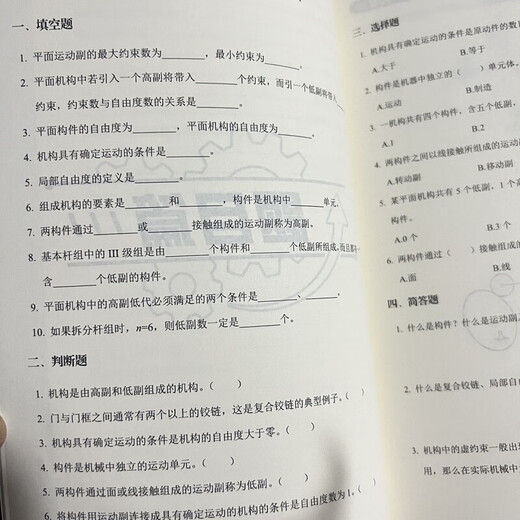 一、填空题
1. 平面运动副的最大约束数为________，最小约束为________。
2. 平面机构中若引入一个高副将带入________个约束，而引一个低副将带入
约束，约束数与自由度数的关系是________。
3. 平面构件的自由度为________，平面机构的自由度为________。
4. 机构具有确定运动的条件是________。
5. 局部自由度的定义是________。
6. 组成机构的要素是________和________，构件是机构中________单元。
7. 两构件通过________或________接触组成的运动副称为高副。
8. 基本杆组中的 III 级组是由________个构件和________个低副所组成，而且都
含________个低副的构件。
9. 平面机构中的高副低代必须满足的两个条件是________、________。
10. 如果拆分杆组时，n=6，则低副数一定是________个。
二、判断题
1. 机构是由高副和低副组成的机构。（ ）
2. 门与门框之间通常有两个以上的铰链，这是复合铰链的典型例子。（ ）
3. 机构具有确定运动的条件是机构的自由度大于零。（ ）
4. 构件是机械中独立的运动单元。（ ）
5. 两构件通过面或线接触组成的运动副称为低副。（ ）
6. 将构件用运动副连接成具有确定运动的机构的条件是自由度数为 1。（
三、选择题
1. 机构具有确定运动的条件是原动件的数
A.大于 B.等于
2. 构件是机器中独立的（ ）单元体。
A.运动 B.制造
3. 一机构共有四个构件、含五个低副，
A.1 B.2
4. 两构件之间以线接触所组成的运动副
A.转动副 B.移动副
5. 某平面机构共有 5 个低副，1 个高
构件。
A.0 个 B.3 个
6. 两构件通过（ ）接触组成的
A.面 B.线
四、简答题
1. 什么是构件？什么是运动副
2. 什么是复合铰链、局部自
3. 机构中的虚约束一般出
用，那么在实际机械中